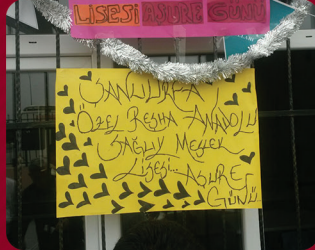 LİSESİ AŞURE GÜNÜ
ŞANLIURFA
ÖZEL REHA ANADOLU
SAĞLIK MESLEK
LİSESİ... AŞURE
GÜNÜ